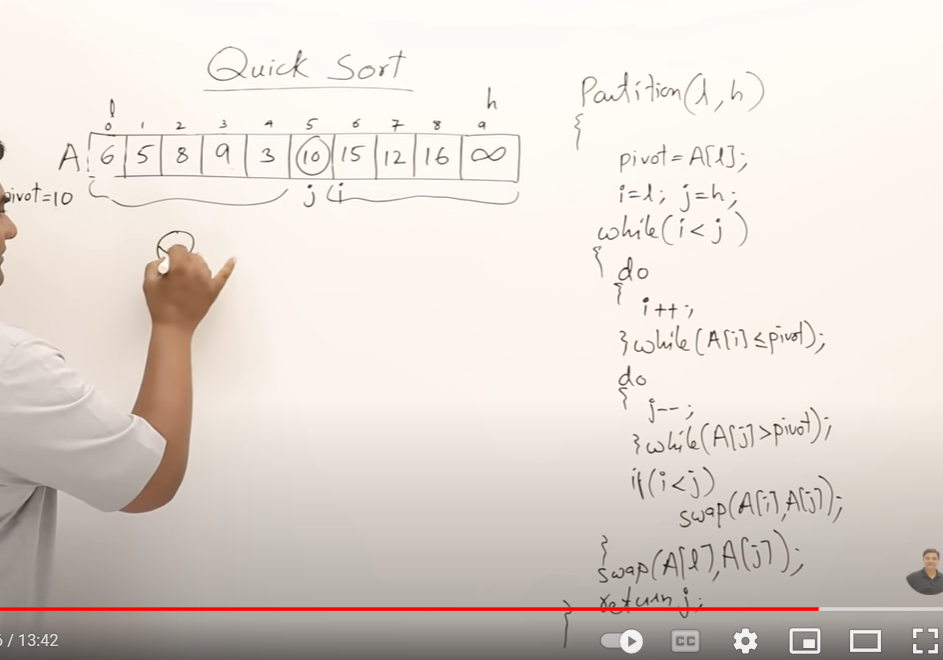 Quick Sort
l h
0 1 2 3 4 5 6 7 8 9
A 6 5 8 9 3 10 15 12 16 ∞
pivot=10 j i
Partition(l,h)
{
pivot=A[l];
i=l; j=h;
while(i<j)
{ do
{
i++;
}while(A[i]≤pivot);
do
{
j--;
}while(A[j]>pivot);
if(i<j)
swap(A[i],A[j]);
}
swap(A[l],A[j]);
return j;
}
/ 13:42
CC